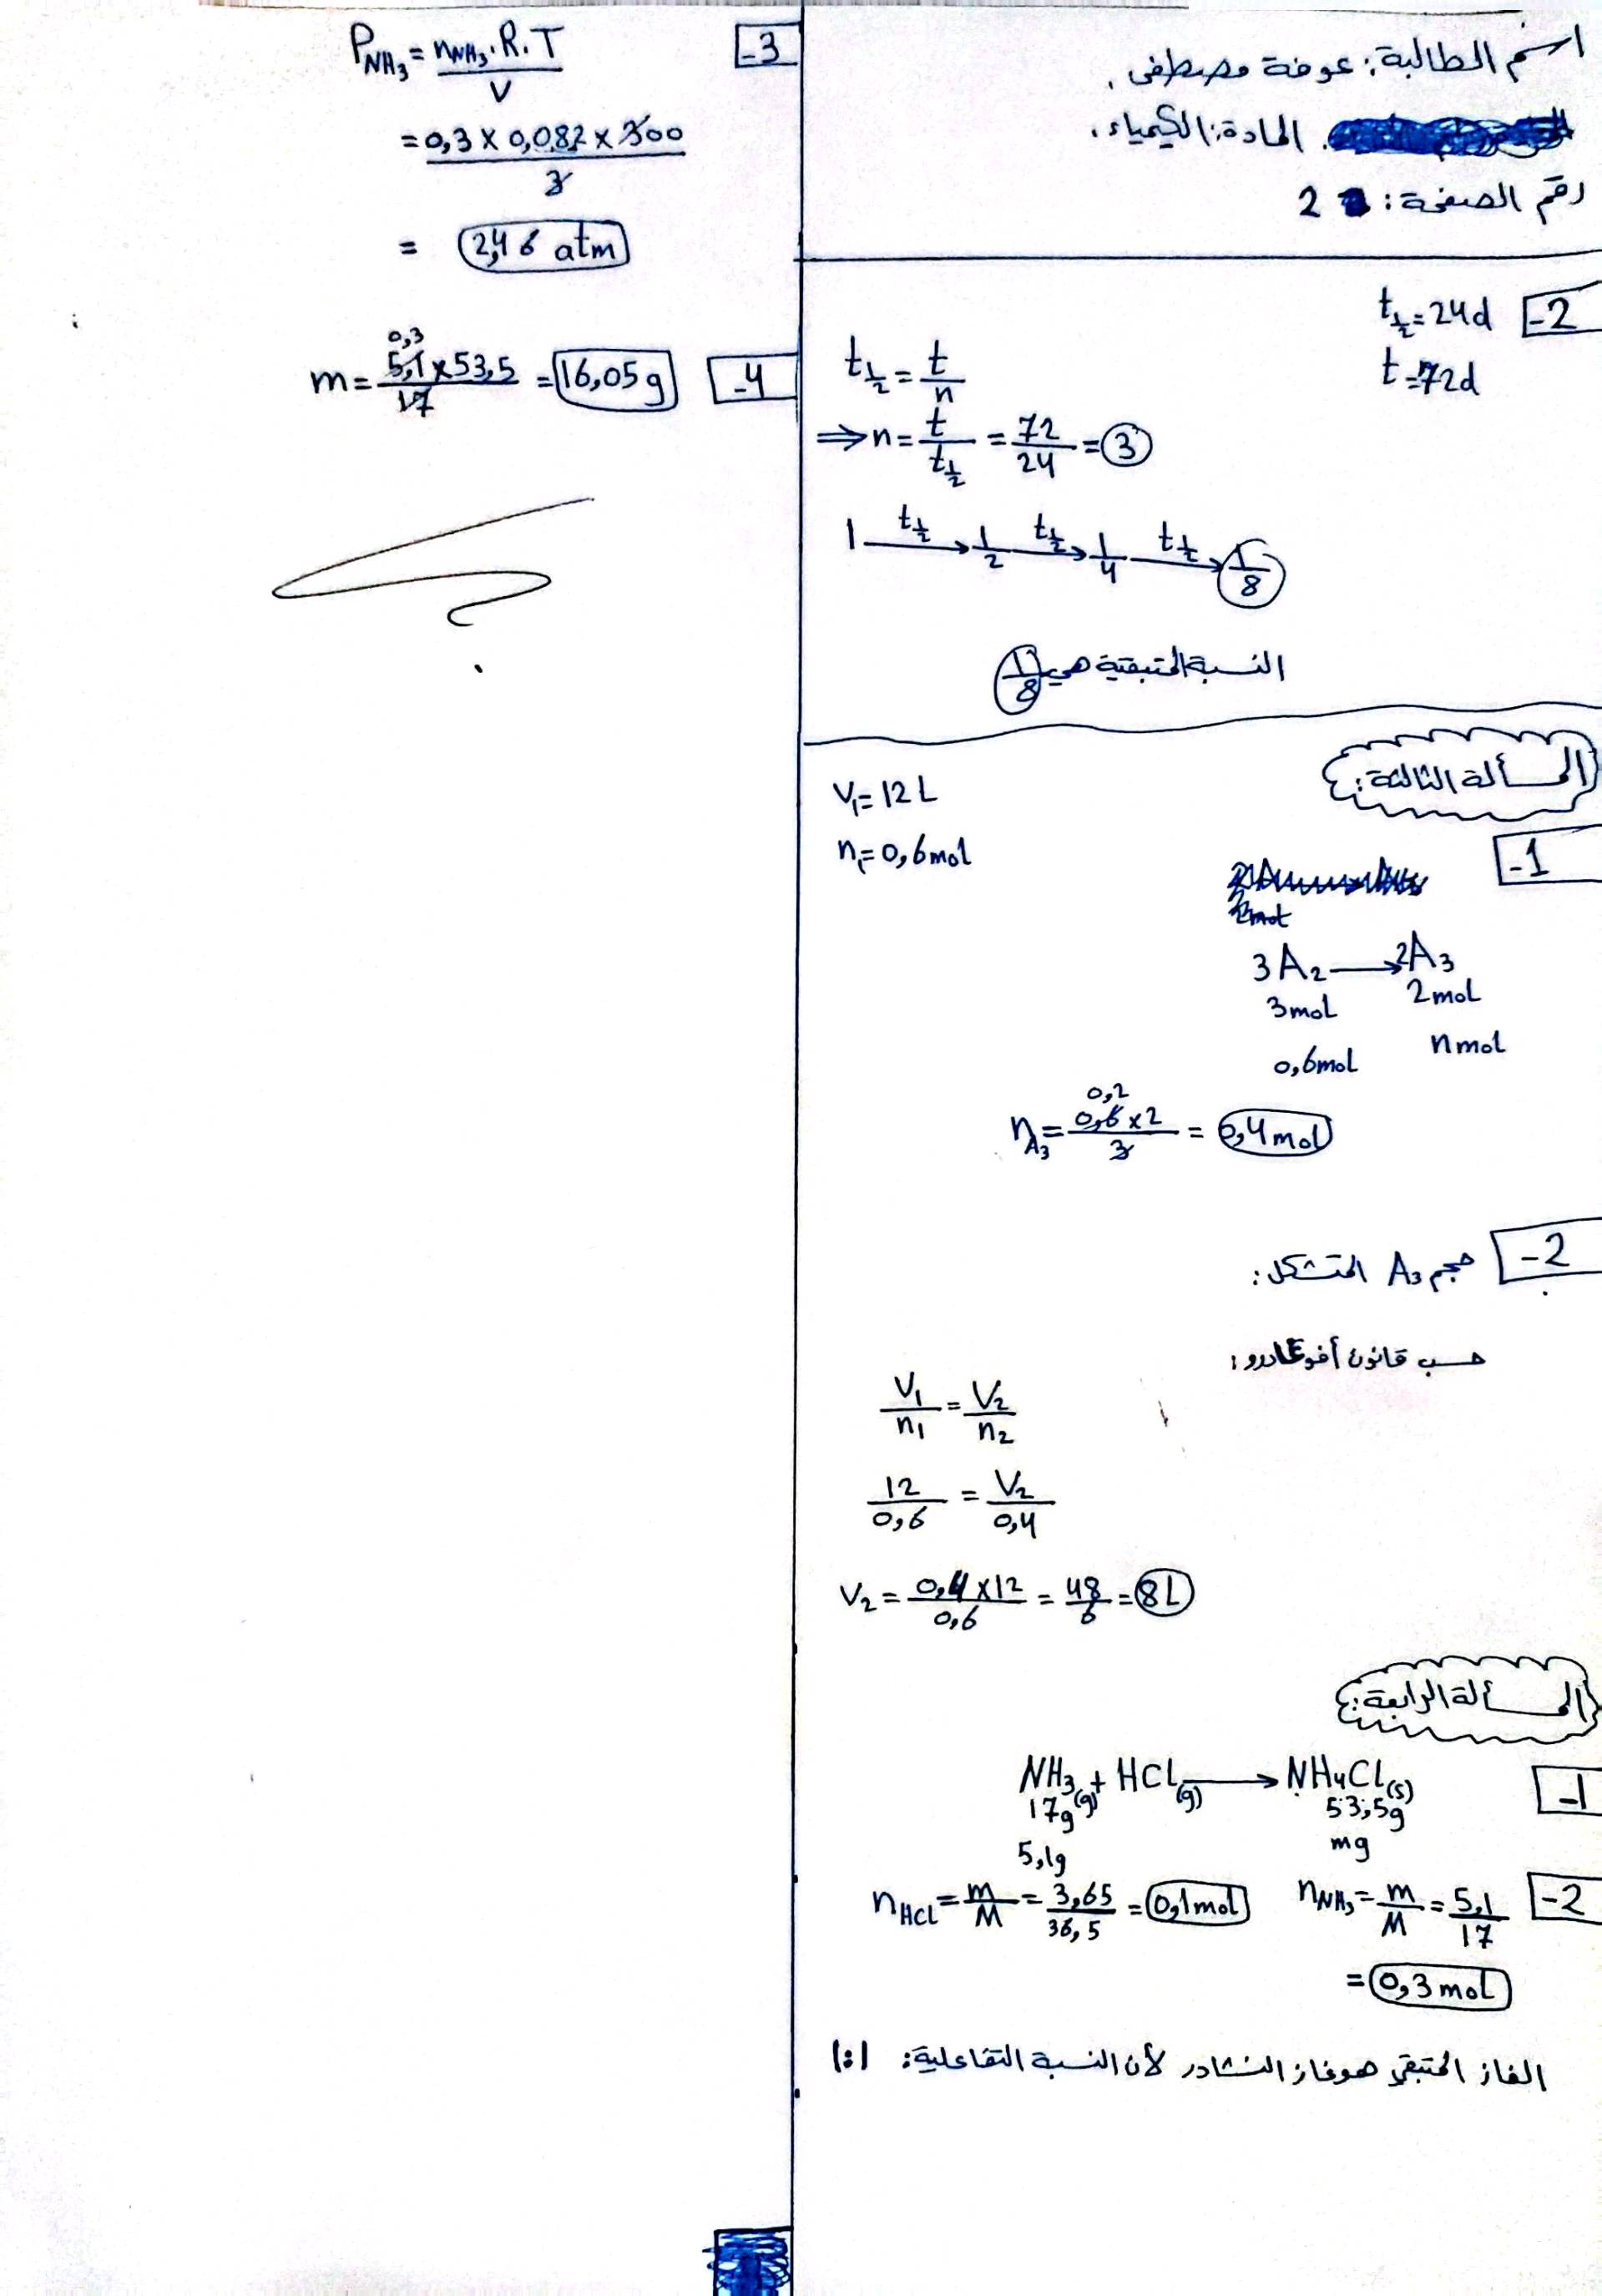 اسم الطالبة: عوفة مصطفى.
المادة: الكيمياء.
رقم الصفحة: 2
-2
t½=24d
t=72d
t½ = t/n
⇒ n = t/t½ = 72/24 = 3
1 —t½→ 1/2 —t½→ 1/4 —t½→ 1/8
النسبة المتبقية هي 1/8
المسألة الثالثة:
V₁= 12L
n₁= 0,6mol
-1
3A₂ → 2A₃
3mol 2mol
0,6mol nmol
n_A₃ = 0,6×2/3 = 0,4mol
0,2
-2 حجم A₃ المتشكل:
حسب قانون أفوغادرو:
V₁/n₁ = V₂/n₂
12/0,6 = V₂/0,4
V₂ = 0,4×12/0,6 = 48/6 = 8L
المسألة الرابعة:
-1
NH₃(g) + HCl(g) → NH₄Cl(s)
17g 53,5g
5,1g mg
-2 n_NH₃ = m/M = 5,1/17
= 0,3mol
n_HCl = m/M = 3,65/36,5 = 0,1mol
الغاز المتبقي هو غاز النشادر لأن النسبة التفاعلية: 1:1
-3
P_NH₃ = n_NH₃.R.T/V
= 0,3×0,082×300/3
= 2,46 atm
-4
0,3
m = 5,1×53,5/17 = 16,05g